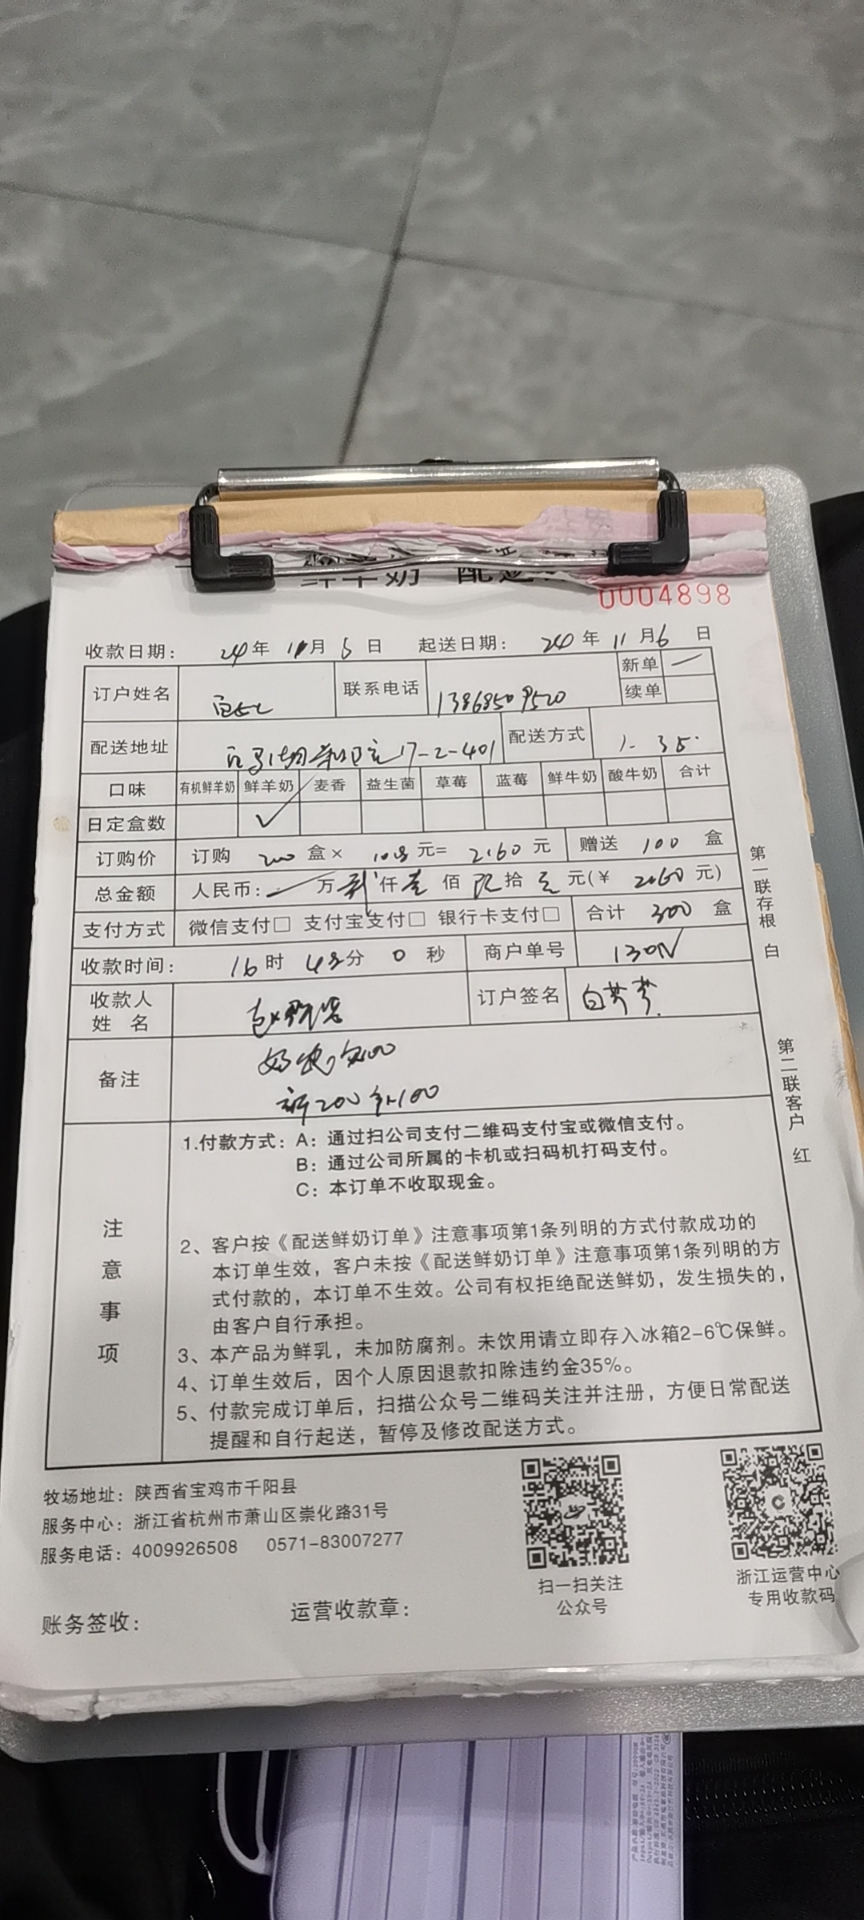 鲜羊奶 配送
0004898
收款日期： 24年 11月 5日 起送日期： 24年 11月 6日
订户姓名 联系电话 13868509520 新单 续单
配送地址 17-2-401 配送方式 1. 35.
口味 有机鲜羊奶 鲜羊奶 麦香 益生菌 草莓 蓝莓 鲜牛奶 酸牛奶 合计
日定盒数 ✓
订购价 订购 200 盒× 10.8 元= 2160 元 赠送 100 盒
总金额 人民币： 万 仟 壹 佰 陆 拾 元(¥ 2160 元)
支付方式 微信支付□ 支付宝支付□ 银行卡支付□ 合计 300 盒
收款时间： 16 时 分 0 秒 商户单号
收款人姓名 订户签名
备注
200 100
注意事项
1.付款方式：A：通过扫公司支付二维码支付宝或微信支付。
B：通过公司所属的卡机或扫码机打码支付。
C：本订单不收取现金。
2、客户按《配送鲜奶订单》注意事项第1条列明的方式付款成功的
本订单生效，客户未按《配送鲜奶订单》注意事项第1条列明的方
式付款的，本订单不生效。公司有权拒绝配送鲜奶，发生损失的，
由客户自行承担。
3、本产品为鲜乳，未加防腐剂。未饮用请立即存入冰箱2-6℃保鲜。
4、订单生效后，因个人原因退款扣除违约金35%。
5、付款完成订单后，扫描公众号二维码关注并注册，方便日常配送
提醒和自行起送，暂停及修改配送方式。
第一联存根 白
第二联客户 红
牧场地址：陕西省宝鸡市千阳县
服务中心：浙江省杭州市萧山区崇化路31号
服务电话：4009926508 0571-83007277
扫一扫关注
公众号
浙江运营中心
专用收款码
账务签收： 运营收款章：